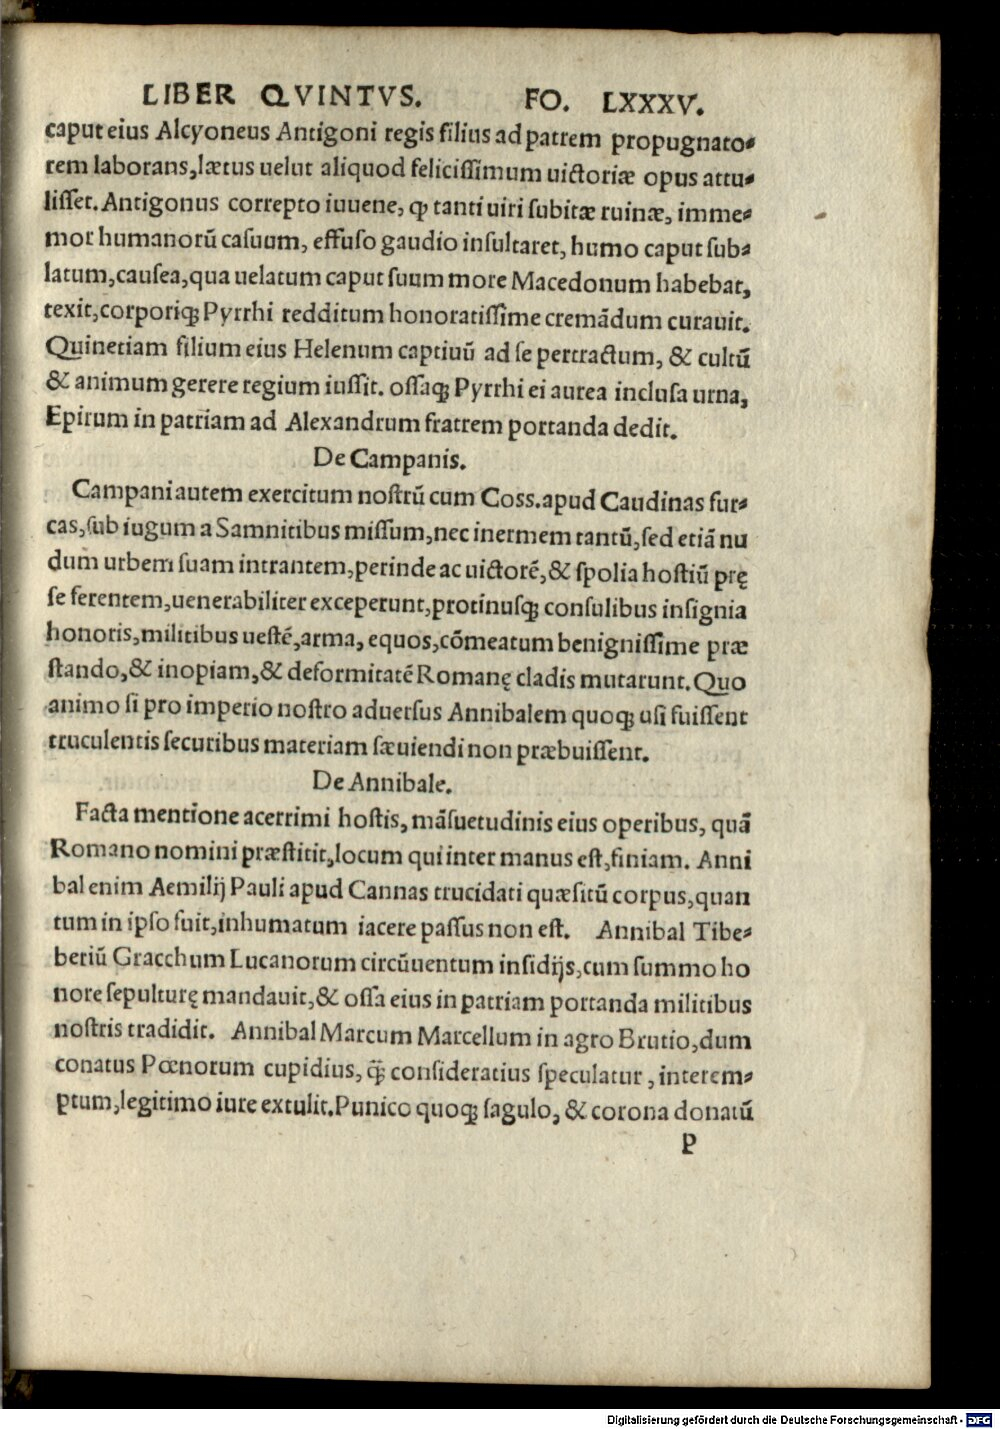 LIBER QVINTVS. FO. LXXXV.
caput eius Alcyoneus Antigoni regis filius ad patrem propugnato-
rem laborans, lætus uelut aliquod felicissimum uictoriæ opus attu-
lisset. Antigonus correpto iuuene, ꝙ tanti uiri subitæ ruinæ, imme-
mor humanorū casuum, effuso gaudio insultaret, humo caput sub-
latum, causea, qua uelatum caput suum more Macedonum habebat,
texit, corporiq; Pyrrhi redditum honoratissime cremādum curauit.
Quinetiam filium eius Helenum captiuū ad se pertractum, & cultū
& animum gerere regium iussit. ossaq; Pyrrhi ei aurea inclusa urna,
Epirum in patriam ad Alexandrum fratrem portanda dedit.
De Campanis.
Campani autem exercitum nostrū cum Coss. apud Caudinas fur-
cas, sub iugum a Samnitibus missum, nec inermem tantū, sed etiā nu
dum urbem suam intrantem, perinde ac uictorē, & spolia hostiū prę
se ferentem, uenerabiliter exceperunt, protinusq; consulibus insignia
honoris, militibus uestē, arma, equos, cōmeatum benignissime præ
stando, & inopiam, & deformitatē Romanę cladis mutarunt. Quo
animo si pro imperio nostro aduersus Annibalem quoq; usi fuissent
truculentis securibus materiam sæuiendi non præbuissent.
De Annibale.
Facta mentione acerrimi hostis, māsuetudinis eius operibus, quā
Romano nomini præstitit, locum qui inter manus est, finiam. Anni
bal enim Aemilij Pauli apud Cannas trucidati quæsitū corpus, quan
tum in ipso fuit, inhumatum iacere passus non est. Annibal Tibe-
beriū Gracchum Lucanorum circūuentum insidijs, cum summo ho
nore sepulturę mandauit, & ossa eius in patriam portanda militibus
nostris tradidit. Annibal Marcum Marcellum in agro Brutio, dum
conatus Pœnorum cupidius, q̄ consideratius speculatur, interem-
ptum, legitimo iure extulit. Punico quoq; sagulo, & corona donatū
P
Digitalisierung gefördert durch die Deutsche Forschungsgemeinschaft - DFG